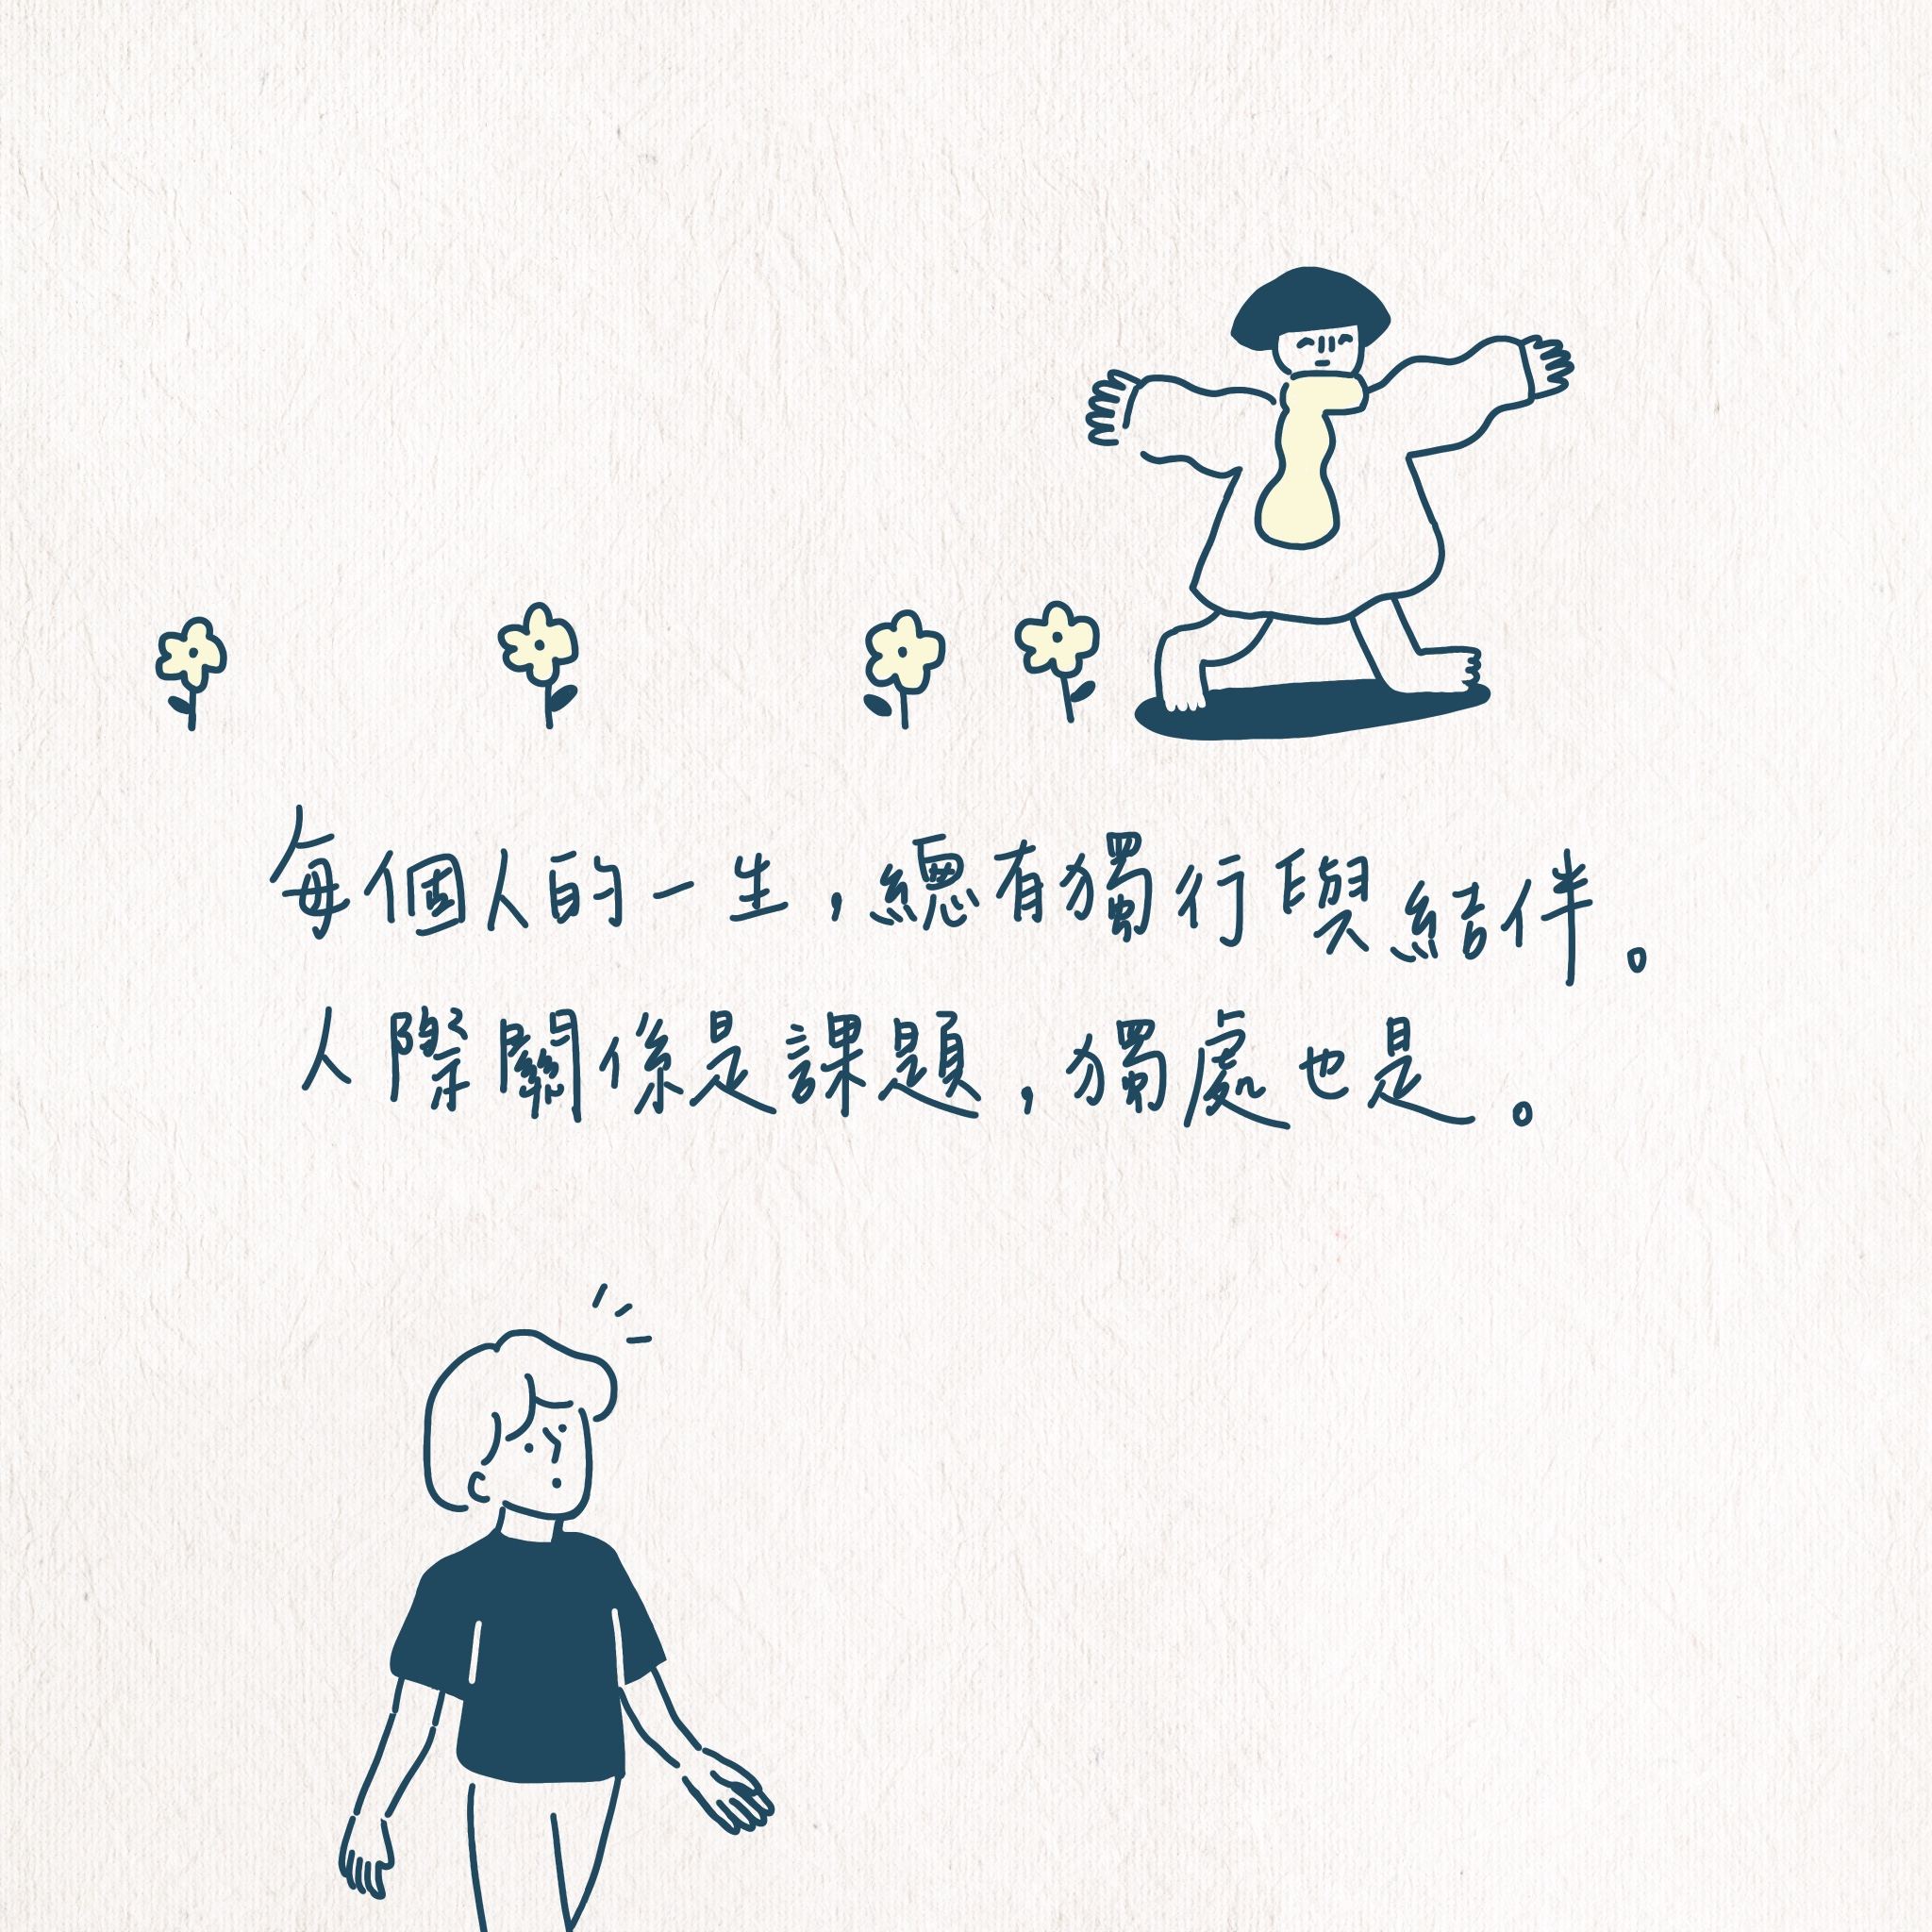 每個人的一生，總有獨行與結伴。
人際關係是課題，獨處也是。